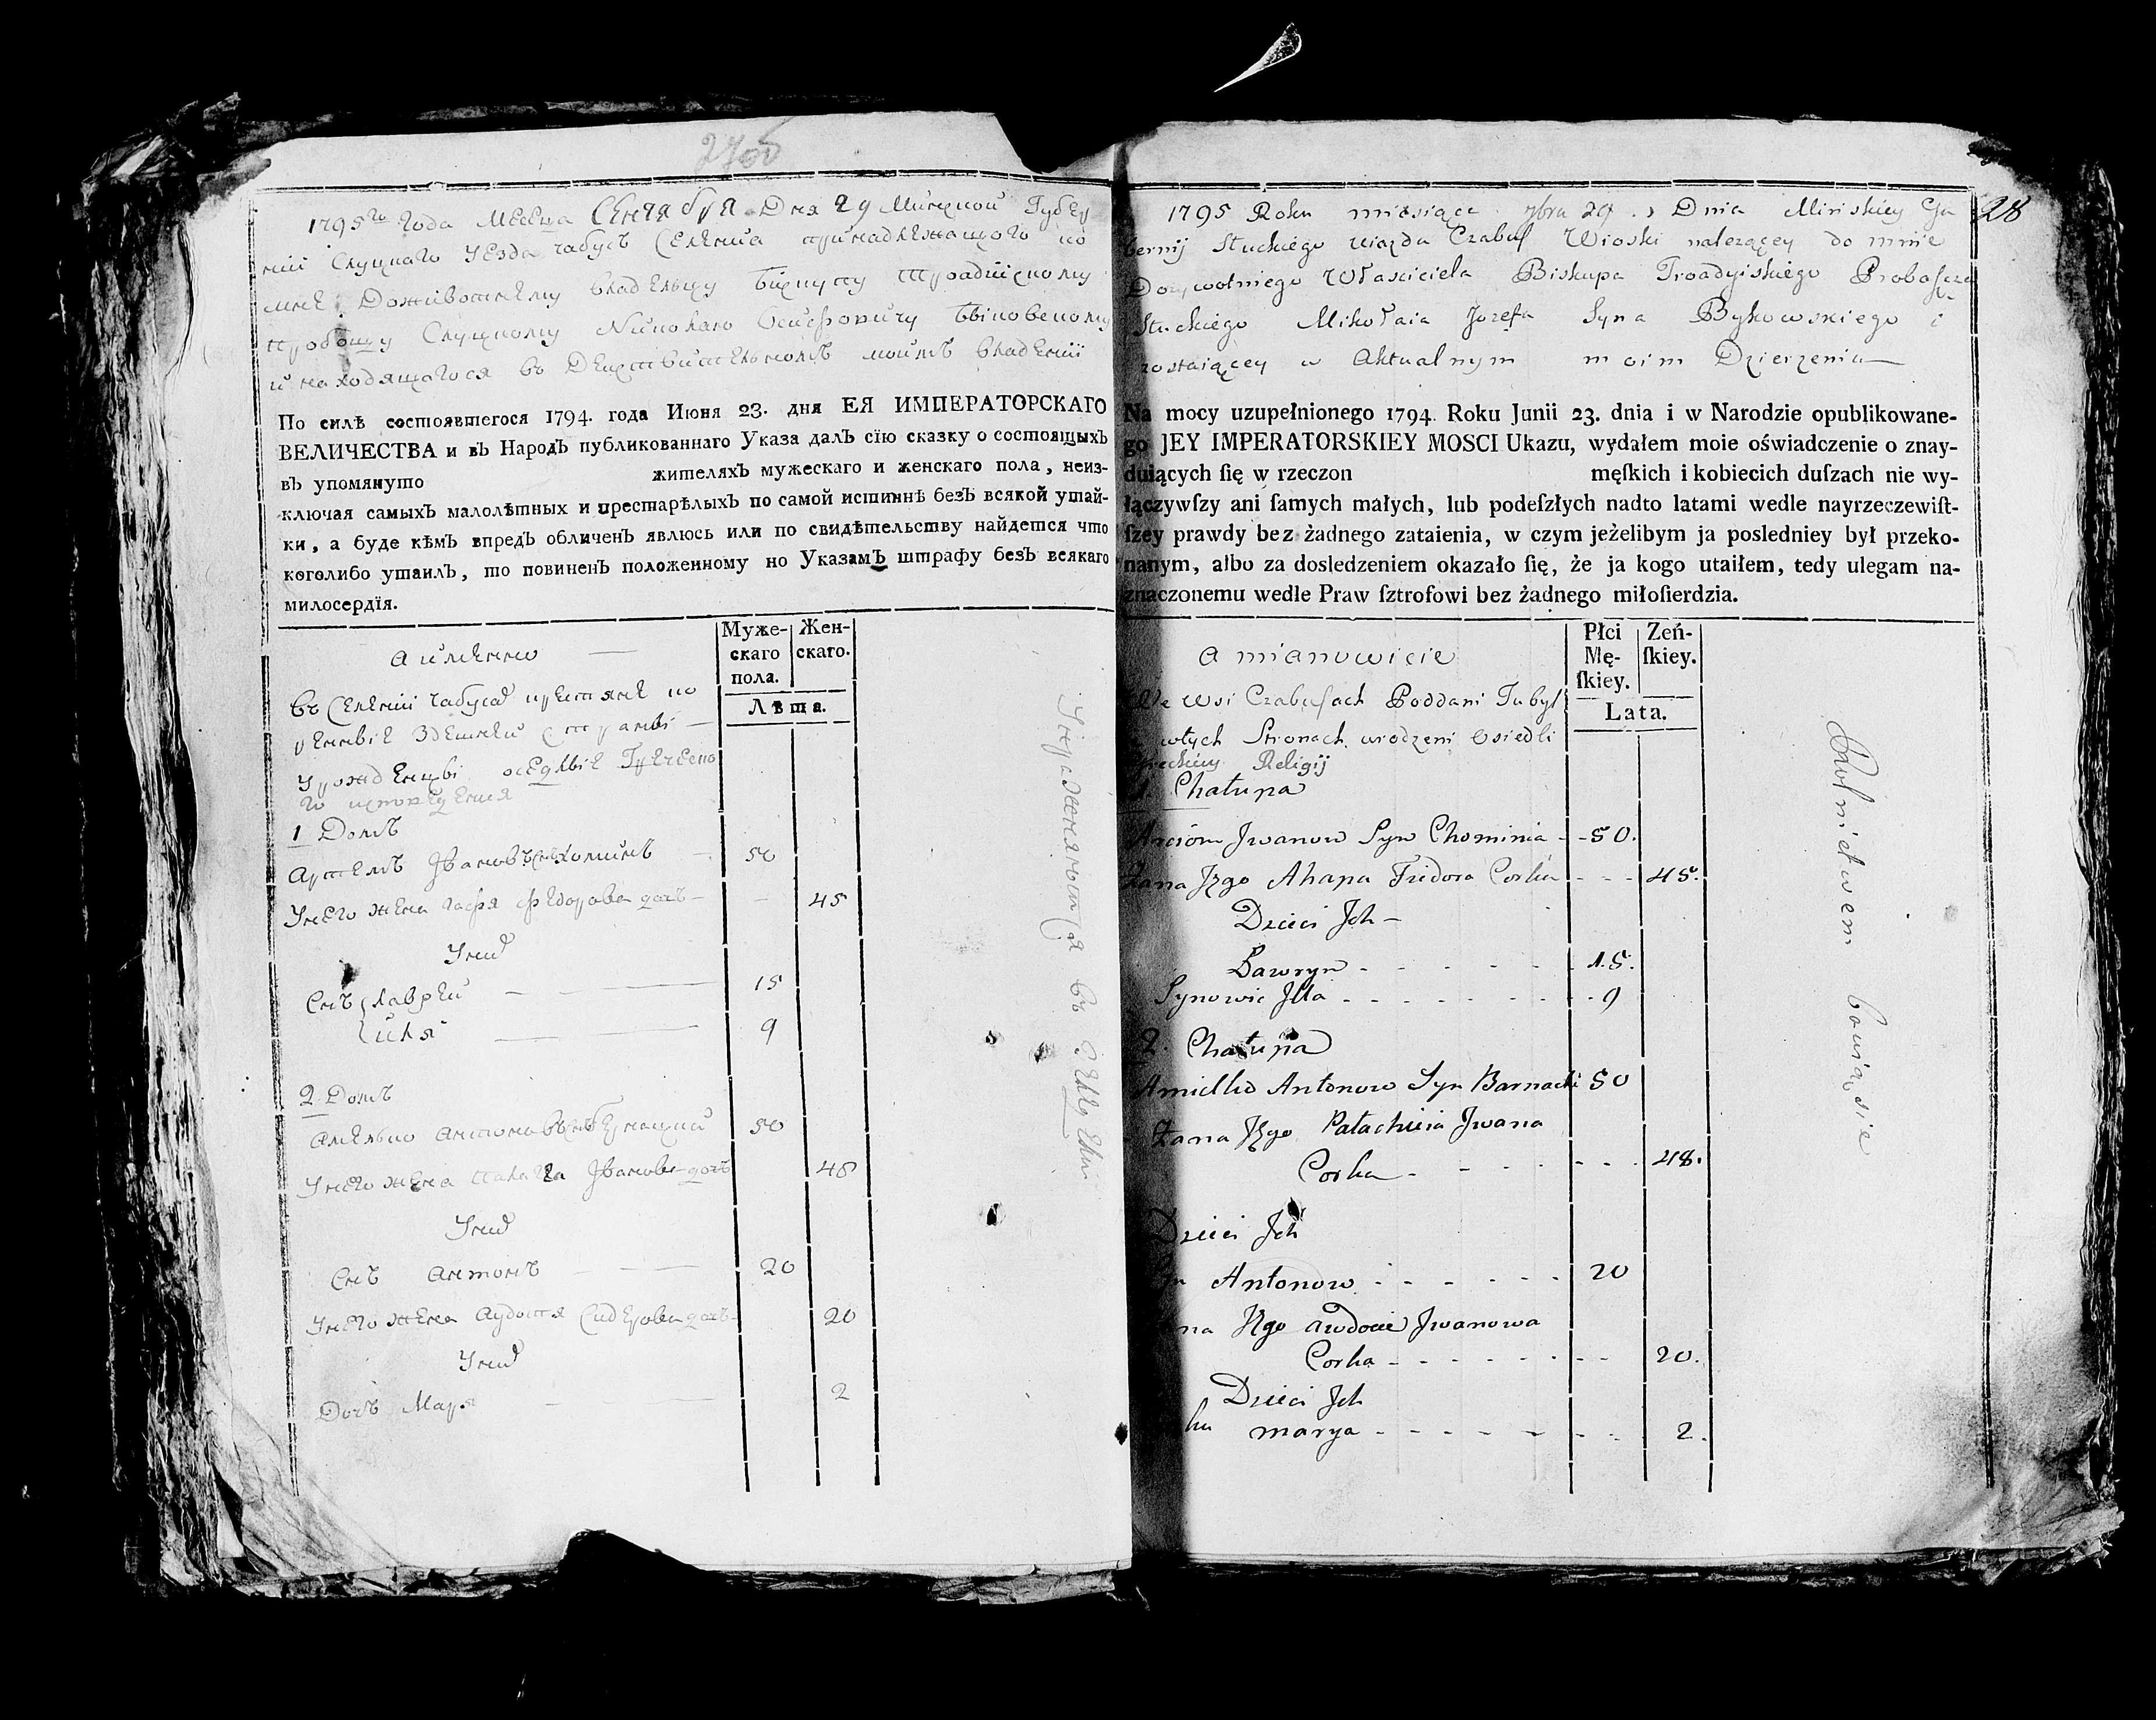 1795го года месеца Сентября Дня 29 Минской Губер
нии Слуцкаго уезда чабусъ Селения принадлежащого ко
мне Доживотнему владельцу бискупу троадийскому
пробощу Слуцкому Николаю Осифовичу Биковскому
и находящагося въ Действителномъ моимъ владении
По силѣ состоявшегося 1794. года Июня 23. дня ЕЯ ИМПЕРАТОРСКАГО
ВЕЛИЧЕСТВА и въ Народъ публикованнаго Указа далъ сїю сказку о состоящыхъ
въ упомянуто жителяхъ мужескаго и женскаго пола, неиз-
ключая самыхъ малолѣтныхъ и престарѣлыхъ по самой истиннѣ безъ всякой утай-
ки, а буде кѣмъ впредъ обличенъ явлюсь или по свидѣтельству найдется что
коголибо утаилъ, то повиненъ положенному по Указамъ штрафу безъ всякаго
милосердїя.
Муже-
скаго
пола.
Жен-
скаго.
Лѣта.
а имянно
въ Селении чабусах
урожденци оседлые Греческо
го
1 Домъ
Артемъ Ивановъ снъ Хоминъ 50
У него жена Гапа Федорова дочъ 45
У них
Снъ Лаврен 15
илья 9
2 Домъ
Амельно Антоновъ снъ Бернацкий 50
У него жена Палагея Иванова дочъ 48
У них
Снъ Антонъ 20
У него жена Аудотя Сидорова дочъ 20
У них
Дочъ Маря 2
28
1795 Roku miesiąca 7bra 29 Dnia Minskiey Gu
bernij Słuckiego uiazdu Czabuſ Wioski nalezącey do mnie
Dozywotniego Własciciela Biskupa Troadyiskiego Probaſzcza
Słuckiego Mikołaia Jozefa Syna Bykowskiego i
zostaiącey w Aktualnym moim Dzierzeniu
Na mocy uzupełnionego 1794. Roku Junii 23. dnia i w Narodzie opublikowane-
go JEY IMPERATORSKIEY MOSCI Ukazu, wydałem moie oświadczenie o znay-
duiących ſię w rzeczon męſkich i kobiecich duſzach nie wy-
łączywſzy ani ſamych małych, lub podeſzłych nadto latami wedle nayrzeczewiſt-
ſzey prawdy bez żadnego zataienia, w czym jeżelibym ja posledniey był przeko-
nanym, albo za dosledzeniem okazało ſię, że ja kogo utaiłem, tedy ulegam na-
znaczonemu wedle Praw ſztrofowi bez żadnego miłoſierdzia.
Płci
Mę-
ſkiey.
Zeń-
ſkiey.
Lata.
a mianowicie
We Wsi Czabuſach Poddani Tubyl
w tych Stronach urodzeni Osiedli
Greckiey Religij
1. Chałupa
Arciom Jwanow Syn Chominia 50.
Zana Jego Ahapa Fiedora Corka 45.
Dzieci Jch
Ławryn 15.
Synowie Jlla 9
2. Chałupa
Amielko Antonow Syn Barnacki 50
Zana Jego Pałachieia Jwana
Corka 48.
Dzieci Jch
Antonow 20
na Jego awdocia Jwanowa
Corka 20.
Dzieci Jch
ka marya 2.